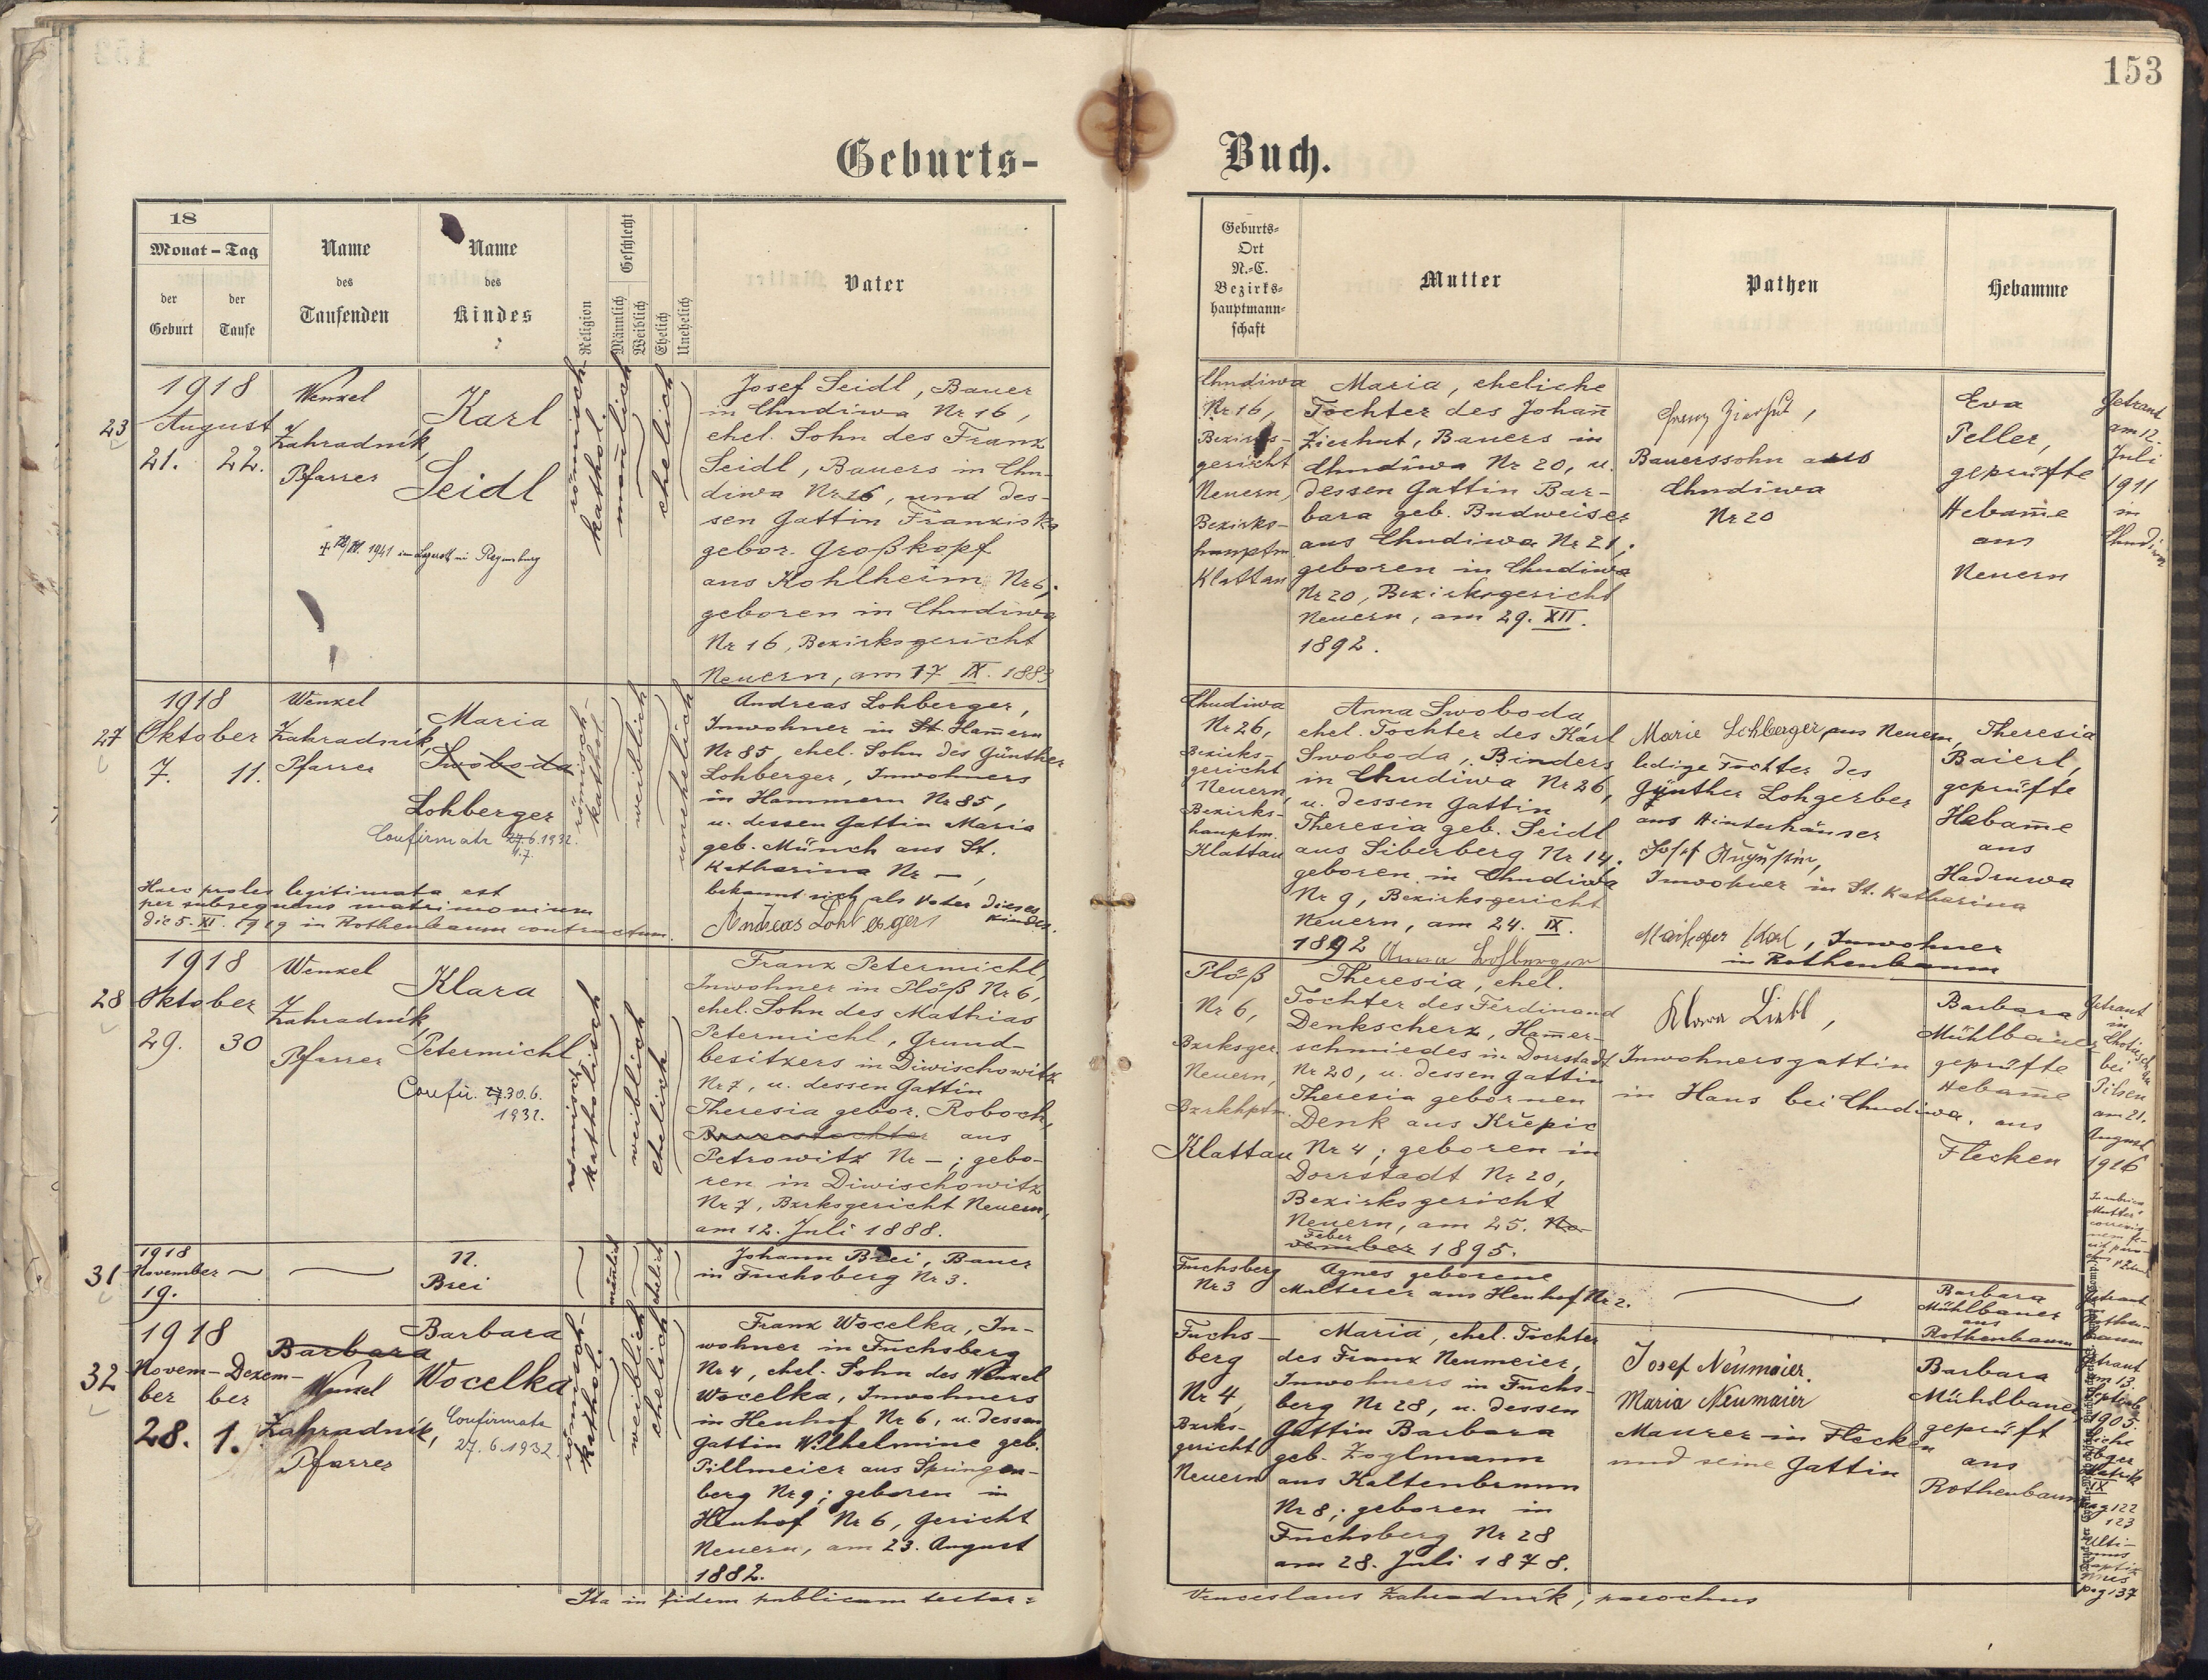 153
Geburts-
Buch.
18
Monat - Tag
der
Geburt
der
Taufe
Name
des
Taufenden
Name
des
Kindes
Religion
Geschlecht
Männlich
Weiblich
Ehelich
Unehelich
Vater
Geburts-
Ort
N.-C.
Bezirks-
hauptmann-
schaft
Mutter
Pathen
Hebamme
23
1918
August
21. 22.
Wenzel
Zahradník,
Pfarrer
Karl
Seidl
1941 im Lazarett in Regensburg
römisch-
kathol.
mañlich
ehelich
Josef Seidl, Bauer
in Chudiwa Nr 16,
ehel. Sohn des Franz
Seidl, Bauers in Chu-
diwa Nr 16, und des-
sen Gattin Franziska
gebor. Großkopf
aus Kohlheim Nr 6;
geboren in Chudiwa
Nr 16, Bezirksgericht
Neuern, am 17 IX. 1883
Chudiwa
Nr 16,
Bezirks-
gericht
Neuern,
Bezirks-
hauptm.
Klattau
Maria, eheliche
Tochter des Johañ
Zierhut, Bauers in
Chudiwa Nr 20, u.
dessen Gattin Bar-
bara geb. Budweiser
aus Chudiwa Nr 21;
geboren in Chudiwa
Nr 20, Bezirksgericht
Neuern, am 29. XII.
1892.
Franz Zierhut,
Bauerssohn aus
Chudiwa
Nr 20
Eva
Peller,
geprüfte
Hebam̄e
aus
Neuern
Getraut
am 12.
Juli
1911
in
Chudiwa
27
1918
Oktober
7. 11.
Wenzel
Zahradník,
Pfarrer
Maria
Swoboda
Lohberger
Confirmata 27.6.1932.
4.7.
römisch-
kathol.
weiblich
unehelich
Andreas Lohberger,
Inwohner in St. Ham̄ern
Nr 85, ehel. Sohn des Günther
Lohberger, Inwohners
in Hammern Nr 85,
u. dessen Gattin Maria
geb. Münch aus St.
Katharina Nr —,
bekannt sich als Vater dieses
Kindes.
Andreas Lohberger
Haec proles legitimata est
per subsequens matrimonium
die 5. XI. 1919 in Rothenbaum contractum.
Chudiwa
Nr 26,
Bezirks-
gericht
Neuern,
Bezirks-
hauptm.
Klattau
Anna Swoboda,
ehel. Tochter des Karl
Swoboda, Binders
in Chudiwa Nr 26,
u. dessen Gattin
Theresia geb. Seidl
aus Silberberg Nr 14.
geboren in Chudiwa
Nr 9, Bezirksgericht
Neuern, am 24. IX.
1892 Anna Lohberger
Marie Lohberger aus Neuern,
ledige Tochter des
Günther Lohgerber
aus Hinterhäuser
Josef Augustin,
Inwohner in St. Katharina
Karl, Inwohner
in Rothenbaum
Theresia
Baierl,
geprüfte
Hebam̄e
aus
Hadruwa
28
1918
Oktober
29. 30
Wenzel
Zahradník
Pfarrer
Klara
Petermichl
Confir. 27.30.6.
1932.
römisch-
katholisch
weiblich
ehelich
Franz Petermichl,
Inwohner in Plöß Nr 6,
ehel. Sohn des Mathias
Petermichl, Grund-
besitzers in Diwischowitz
Nr 7, u. dessen Gattin
Theresia gebor. Roboch,
Bauerstochter aus
Petrowitz Nr —; gebo-
ren in Diwischowitz
Nr 7, Bzrksgericht Neuern,
am 12. Juli 1888.
Plöß
Nr 6,
Bzrksger.
Neuern,
Bzrkhptm.
Klattau
Theresia, ehel.
Tochter des Ferdinand
Denkscherz, Ham̄er-
schmiedes in Dorrstadt
Nr 20, u. dessen Gattin
Theresia gebornen
Denk aus Křepic
Nr 4; geboren in
Dorrstadt Nr 20,
Bezirksgericht
Neuern, am 25. No-
Feber
vember 1895.
Klara Liebl,
Inwohnersgattin
in Haus bei Chudiwa.
Barbara
Mühlbauer
geprüfte
Hebam̄e
aus
Flecken
Getraut
in
bei
Pilsen
am 21.
August
1916
31
1918
November
19.
N.
Brei
mänlich
ehelich
Johann Brei, Bauer
in Fuchsberg Nr 3.
Fuchsberg
Nr 3
Agnes geborene
Multerer aus Heuhof Nr 2.
Barbara
Mühlbauer
aus
Rothenbaum
Getraut
in
Rothen-
baum
32
1918
Novem- Dezem-
ber ber
28. 1.
Barbara
Wenzel
Zahradník,
Pfarrer
Barbara
Wocelka
Confirmata
27.6.1932
römisch-
kathol.
weiblich
ehelich
Franz Wocelka, In-
wohner in Fuchsberg
Nr 4, ehel. Sohn des Wenzel
Wocelka, Inwohners
in Heuhof Nr 6, u. dessen
Gattin Wilhelmine geb.
Pillmeier aus Springen-
berg Nr 9; geboren in
Heuhof Nr 6, Gericht
Neuern, am 23. August
1882.
Fuchs-
berg
Nr 4,
Bzrks-
gericht
Neuern
Maria, ehel. Tochter
des Franz Neumeier,
Inwohners in Fuchs-
berg Nr 28, u. dessen
Gattin Barbara
geb. Zoglmann
aus Kaltenbrunn
Nr 8; geboren in
Fuchsberg Nr 28
am 28. Juli 1878.
Josef Neumaier.
Maria Neumaier
Maurer in Flecken
und seine Gattin
Barbara
Mühlbauer
geprüft
aus
Rothenbaum
Getraut
am 13.
Septemb
1905.
IX
pag 122
123
Ulti-
mus
pag 137
Ita in fidem publicam testor:
Venceslaus Zahradník, parochus